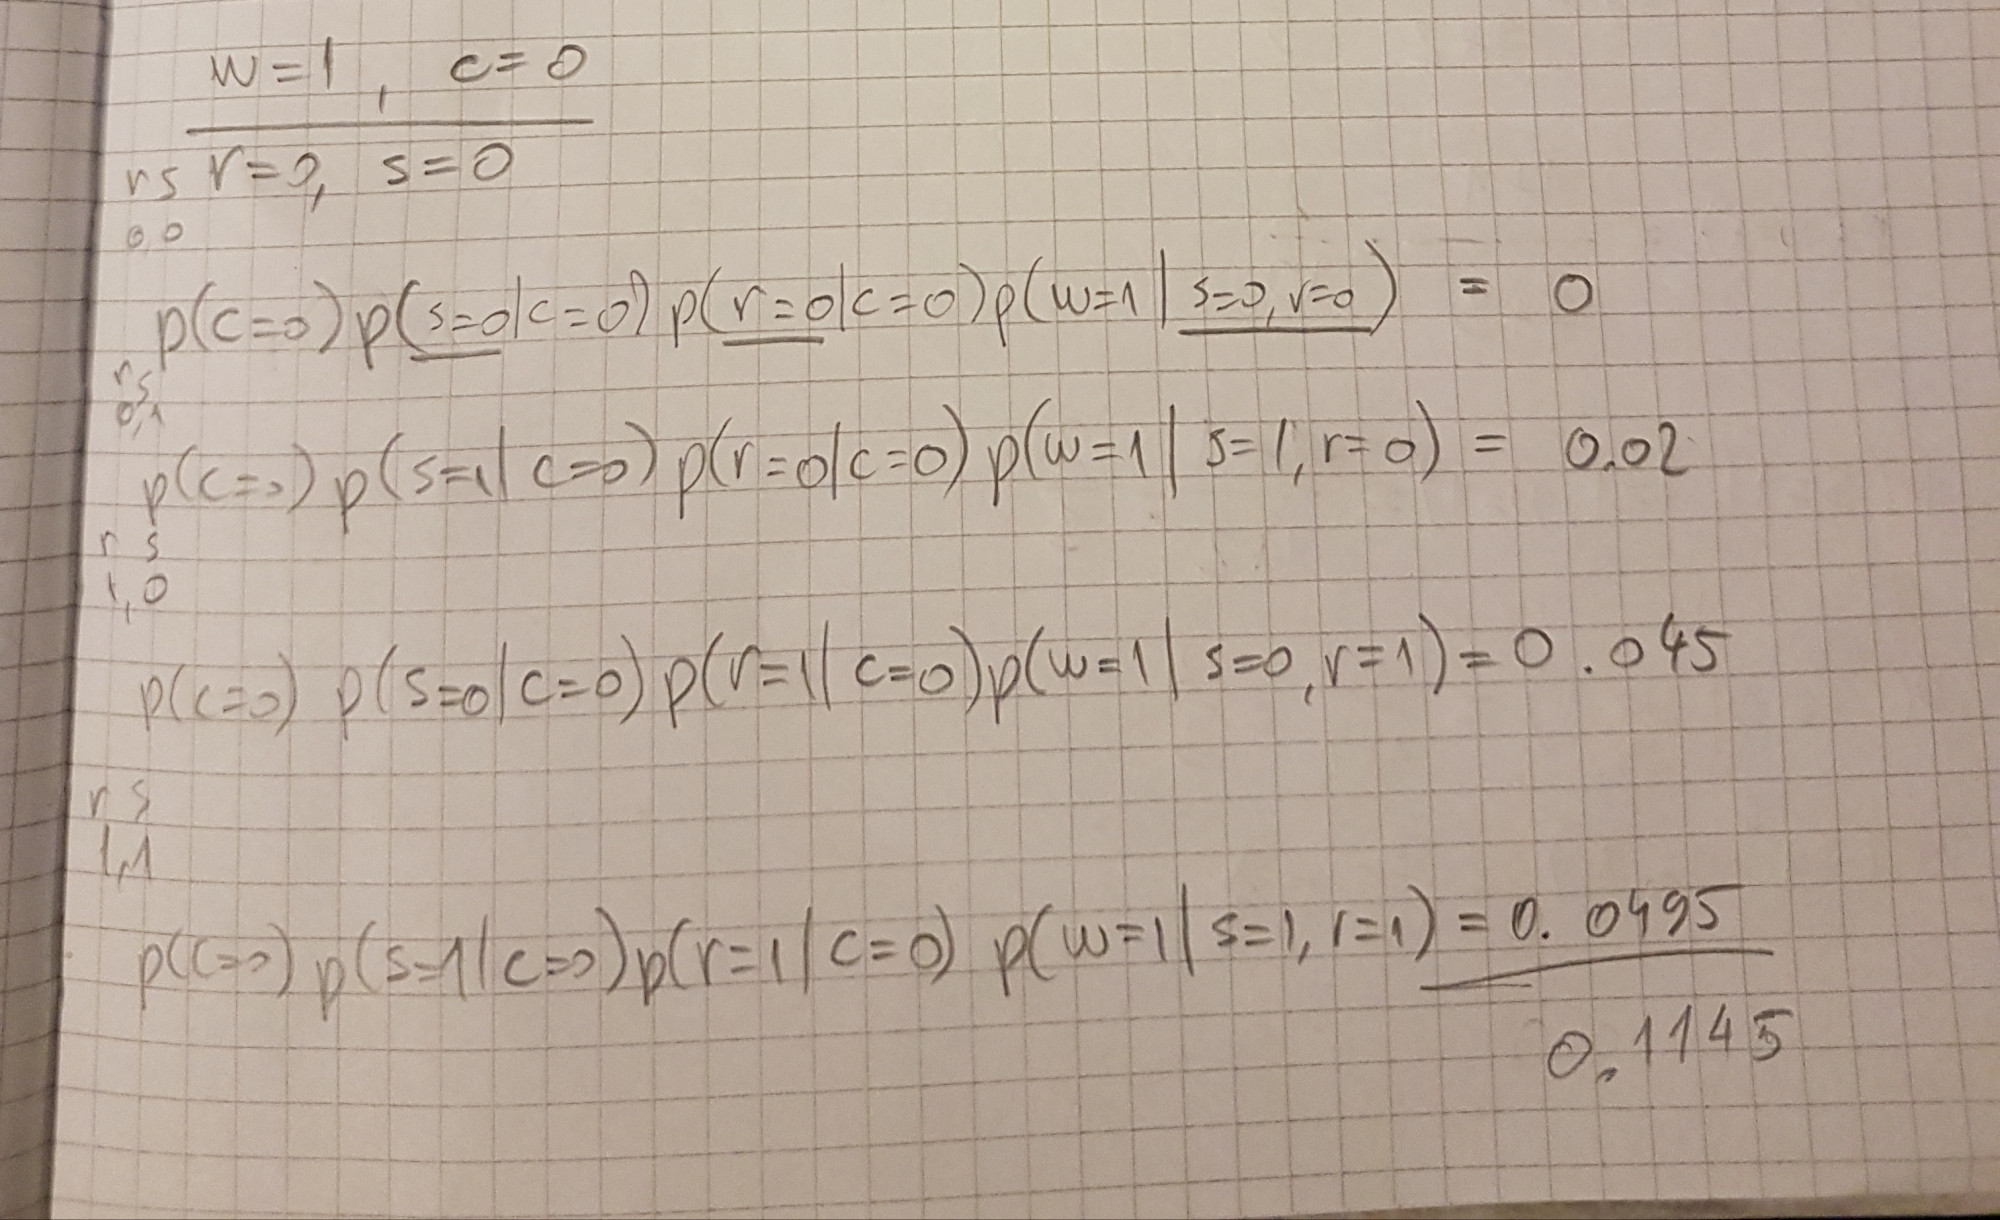 w=1, c=0
r s r=0, s=0
0 0
p(c=0) p(s=0|c=0) p(r=0|c=0) p(w=1 | s=0, r=0) = 0
r s
0,1
p(c=0) p(s=1| c=0) p(r=0|c=0) p(w=1 | s=1, r=0) = 0.02
r s
1,0
p(c=0) p(s=0|c=0) p(r=1| c=0) p(w=1 | s=0, r=1) = 0.045
r s
1,1
p(c=0) p(s=1|c=0) p(r=1 | c=0) p(w=1 | s=1, r=1) = 0.0495
0.1145